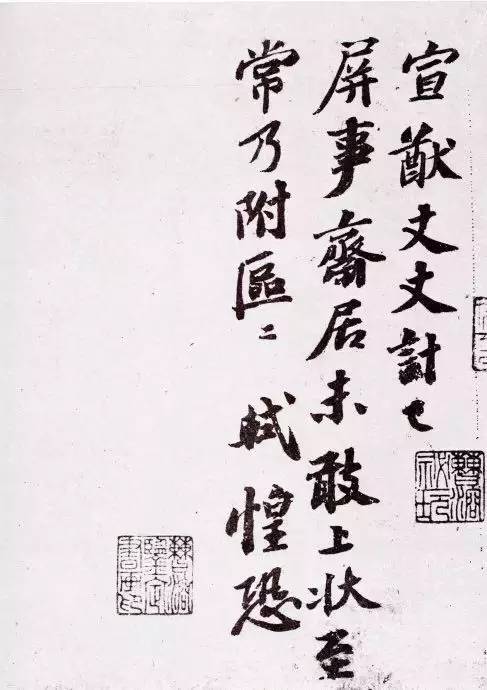 宣猷丈丈計已
屏事齋居未敢上状至
常乃附區〻 軾惶恐